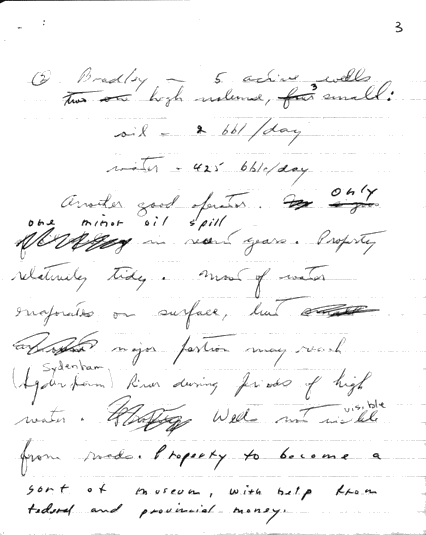 3
② Bradley - 5 active wells
two high volume, 3 small:
oil - 2 bbl/day
water - 425 bbls/day
Another good operator. only
one minor oil spill
in recent years. Property
relatively tidy. Most of water
evaporates on surface, but
major portion may reach
Sydenham
River during periods of high
water. Wells not visible
from roads. Property to become a
sort of museum, with help from
federal and provincial money.